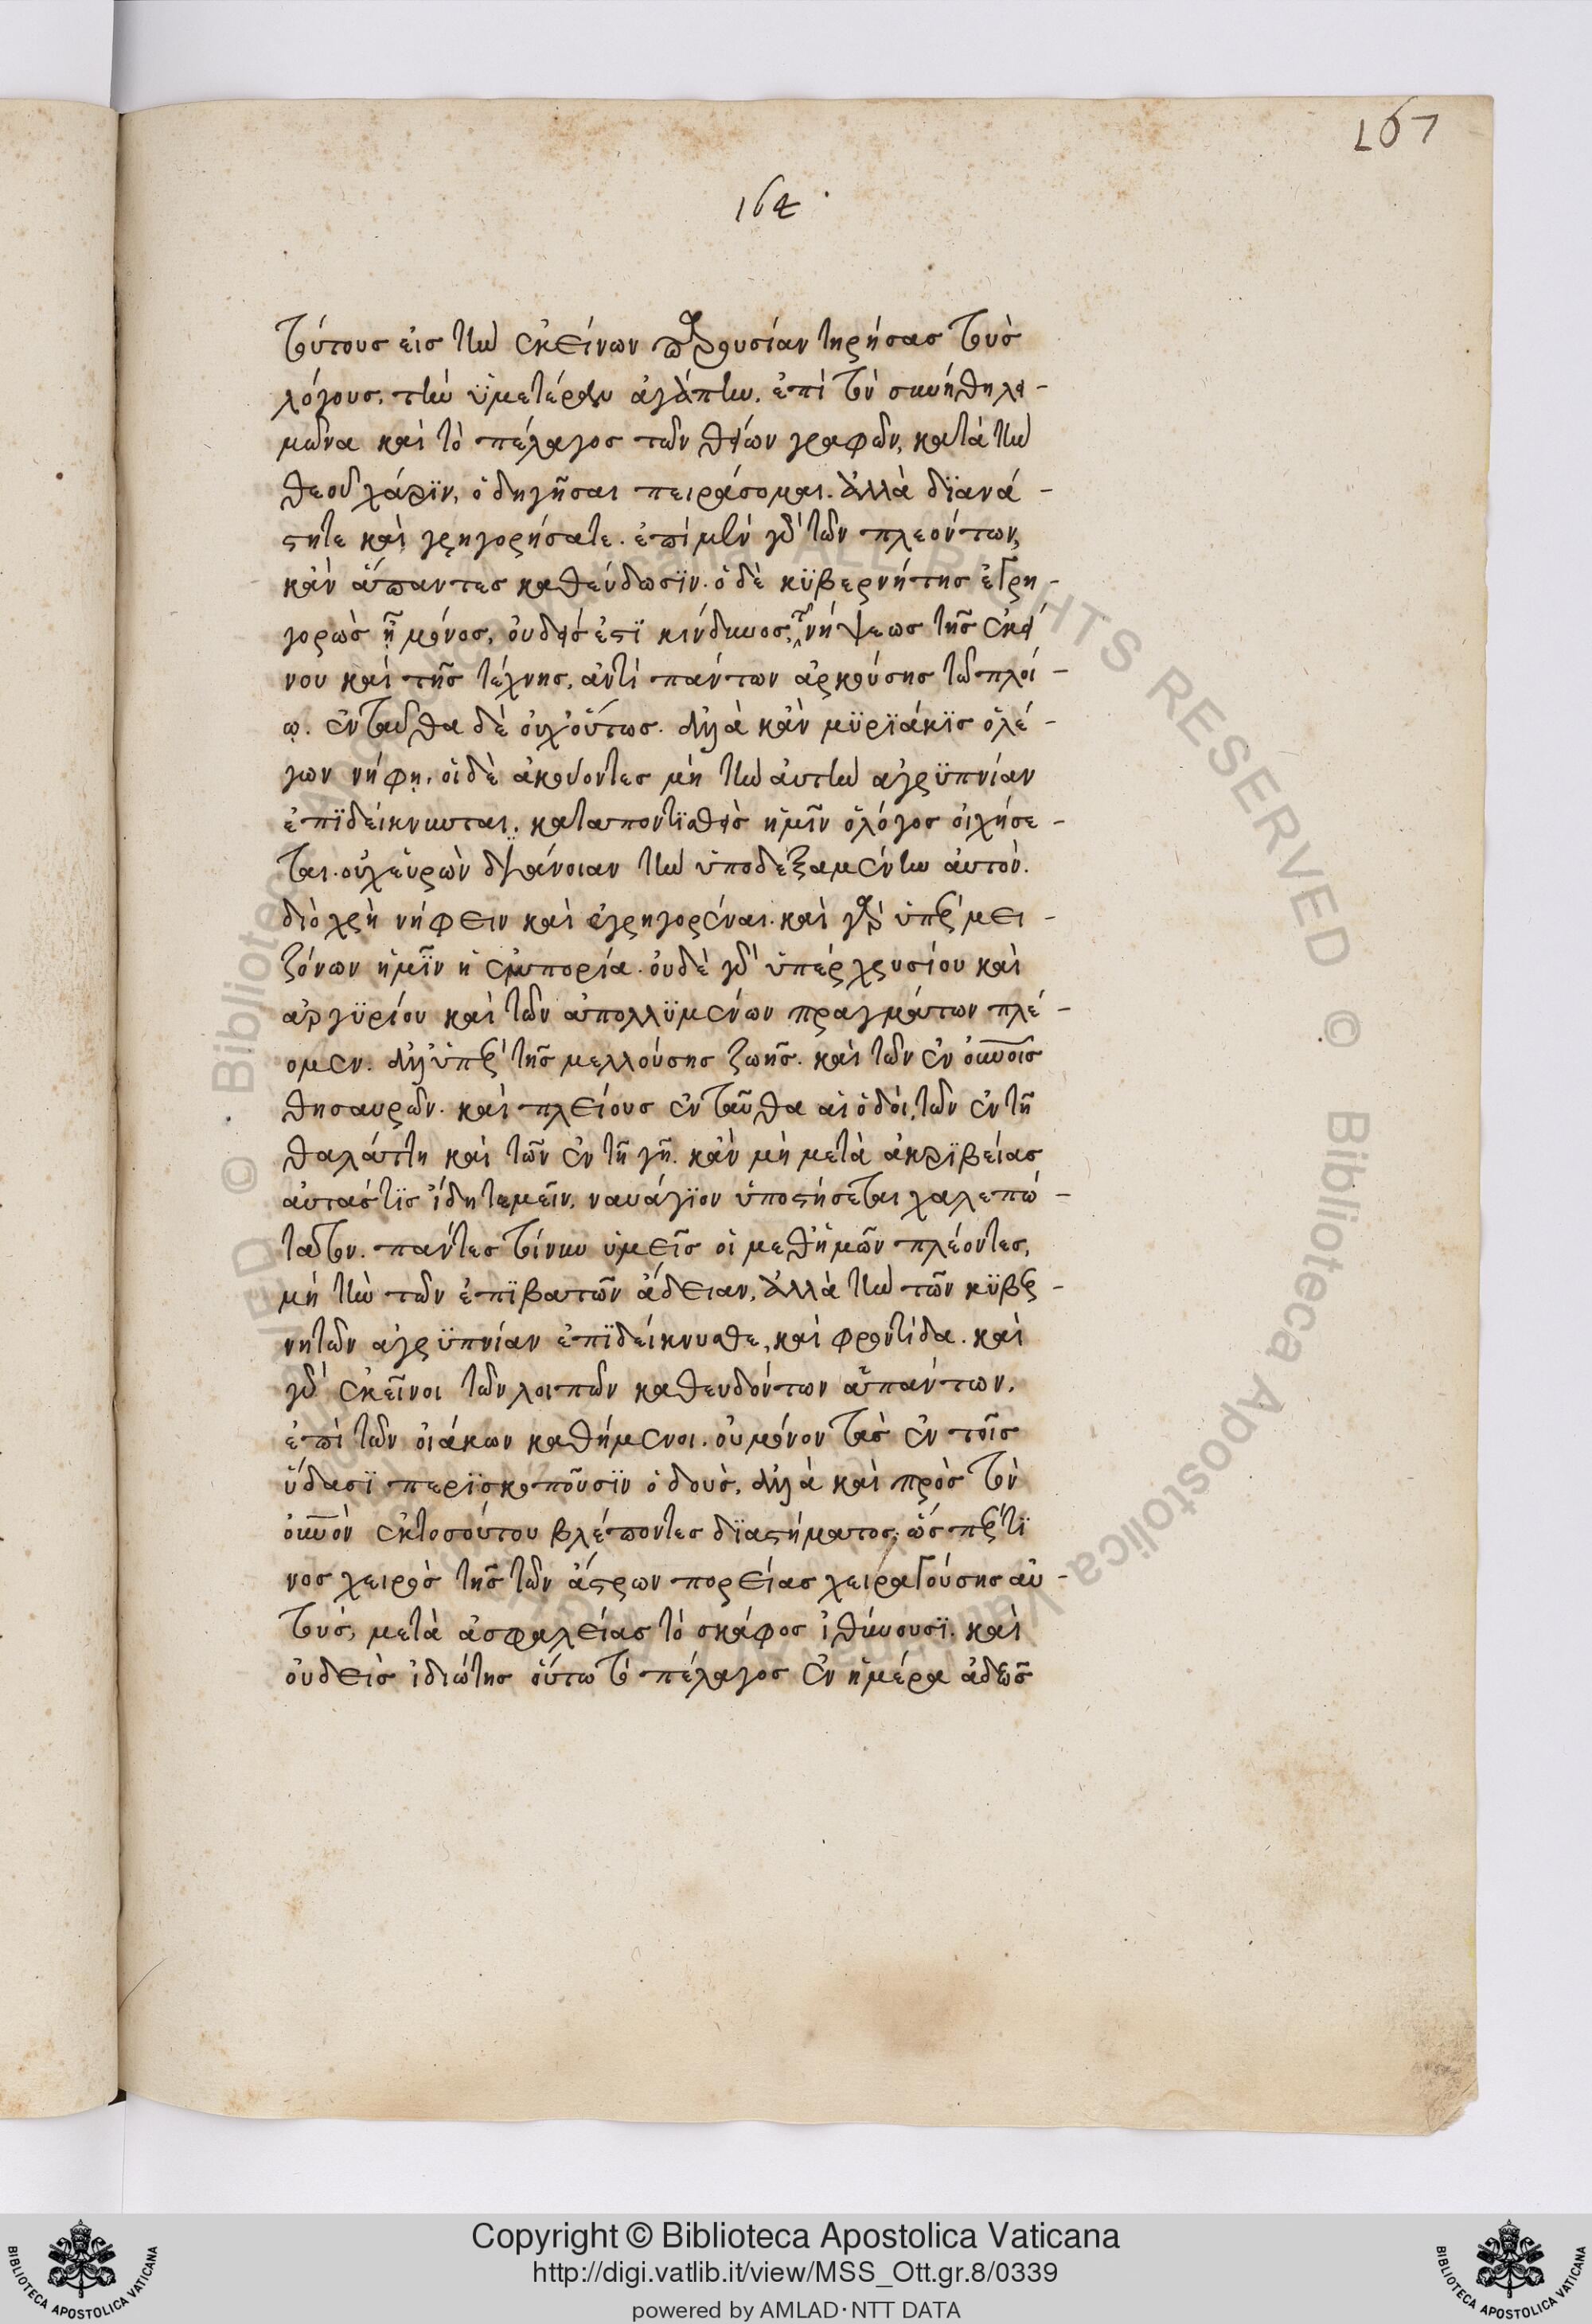 167
164
τούτους εἰς τὴν ἐκείνων παρουσίαν τηρήσας τοὺς
λόγους, τὴν ὑμετέραν ἀγάπην, ἐπὶ τὸν συνήθη λει-
μῶνα καὶ τὸ πέλαγος τῶν θείων γραφῶν, κατὰ τὴν
θεοῦ χάριν, ὁδηγῆσαι πειράσομαι. ἀλλὰ διανά-
στητε καὶ γρηγορήσατε. ἐπὶ μὲν γὰρ τῶν πλεόντων,
κἂν ἅπαντες καθεύδωσϊν. ὁ δὲ κϋβερνήτης ἐγρη-
γορὼς ᾖ μόνος, οὐδείς ἐστϊ κίνδυνος, τῆς νήψεως τῆς ἐκεί
νου καὶ τῆς τέχνης, ἀντὶ πάντων ἀρκούσης τῷ πλοί-
ῳ. ἐνταῦθα δὲ οὐχ οὕτως. ἀλλὰ κἂν μϋρϊάκϊς ὁ λέ-
γων νήφῃ, οἱ δὲ ἀκούοντες μὴ τὴν αὐτὴν ἀγρϋπνίαν
ἐπϊδείκνυνται, καταποντϊσθεὶς ἡμῖν ὁ λόγος οἰχήσε-
ται. οὐχ εὑρὼν διάνοιαν τὴν ὑποδεξαμένην αὐτόν.
διὸ χρὴ νήφειν καὶ ἐγρηγορέναι. καὶ γὰρ ὑπὲρ μει-
ζόνων ἡμῖν ἡ ἐμπορία. οὐδὲ γὰρ ὑπὲρ χρυσίου καὶ
ἀργϋρίου καὶ τῶν ἀπολλϋμένων πραγμάτων πλέ-
ομεν. ἀλλ' ὑπὲρ τῆς μελλούσης ζωῆς. καὶ τῶν ἐν οὐνοῖς
θησαυρῶν. καὶ πλείους ἐνταῦθα αἱ ὁδοί, τῶν ἐν τῇ
θαλάττῃ καὶ τῶν ἐν τῇ γῇ. κἂν μὴ μετὰ ἀκρϊβείας
αὐτάς τϊς ἴδῃ τεμεῖν, ναυάγϊον ὑποστήσεται χαλεπώ-
τατον. πάντες τοίνυν ὑμεῖς οἱ μεθ' ἡμῶν πλέοντες,
μὴ τὴν τῶν ἐπϊβατῶν ἄδειαν, ἀλλὰ τὴν τῶν κϋβερ-
νητῶν ἀγρϋπνίαν ἐπϊδείκνυσθε, καὶ φροντίδα. καὶ
γὰρ ἐκεῖνοι τῶν λοιπῶν καθευδόντων ἁπάντων,
ἐπὶ τῶν οἰάκων καθήμενοι. οὐ μόνον τὰς ἐν τοῖς
ὕδασϊ περϊσκοποῦσϊν ὁδούς, ἀλλὰ καὶ πρὸς τὸν
οὐνὸν ἐκ τοσούτου βλέποντες δϊαστήματος, ὥσπερ τϊ
νος χειρὸς τῆς τῶν ἄστρων πορείας χειραγούσης αὐ-
τούς, μετὰ ἀσφαλείας τὸ σκάφος ἰθύνουσϊ. καὶ
οὐδεὶς ἰδιώτης οὕτω τὸ πέλαγος ἐν ἡμέρα ἀδεῶς
Copyright © Biblioteca Apostolica Vaticana
http://digi.vatlib.it/view/MSS_Ott.gr.8/0339
powered by AMLAD·NTT DATA